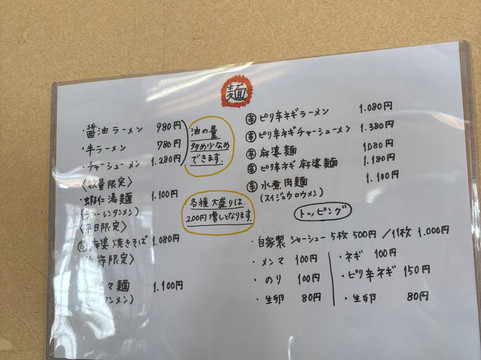 麺
・醤油ラーメン 980円
・半ラーメン 780円
・チャーシューメン 1.280円
〈数量限定〉
・蝦仁湯麺 1.100円
ーレンタンメン)
日限定〉
麻婆焼きそば 1.080円
節限定〉
マ麺 1.100円
ンメン)
油の量
多め少なめ
できます。
各種大盛りは
200円増しとなります
ピリ辛ネギラーメン 1.080円
ピリ辛ネギチャーシューメン 1.380円
麻婆麺 1.080円
ピリ辛ネギ麻婆麺 1.180円
水煮肉麺 1.100円
(スイジュウロウメン)
トッピング
・自家製チャーシュー 5枚 500円 / 11枚 1.000円
・メンマ 100円
・のり 100円
・生卵 80円
・ネギ 100円
・ピリ辛ネギ 150円
・生卵 80円